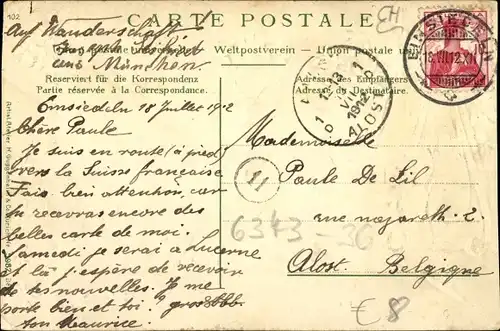 102
CARTE POSTALE
CH
Auf Wanderschaft
Weltpostverein — Union postale un
aus München.
Reserviert für die Korrespondenz
Partie réservée à la Correspondance.
Adresse des Empfängers
Adresse du Destinataire.
EINSIEDELN
18.VII.12.XII
1912
ALOST
Einsiedeln 18 Juillet 1912
Chère Paule
Je suis en route (à pied)
vers la Suisse française.
Fais bien attention, car
tu recevras encore des
belles carte de moi.
Samedi je serai a Lucerne
et là j'espère de recevoir
de tes nouvelles. Je me
porte bien et toi?
ton Maurice
11
Mademoiselle
Paule De Lil
rue nazareth. 2.
6343-36
Alost. Belgique
€ 8